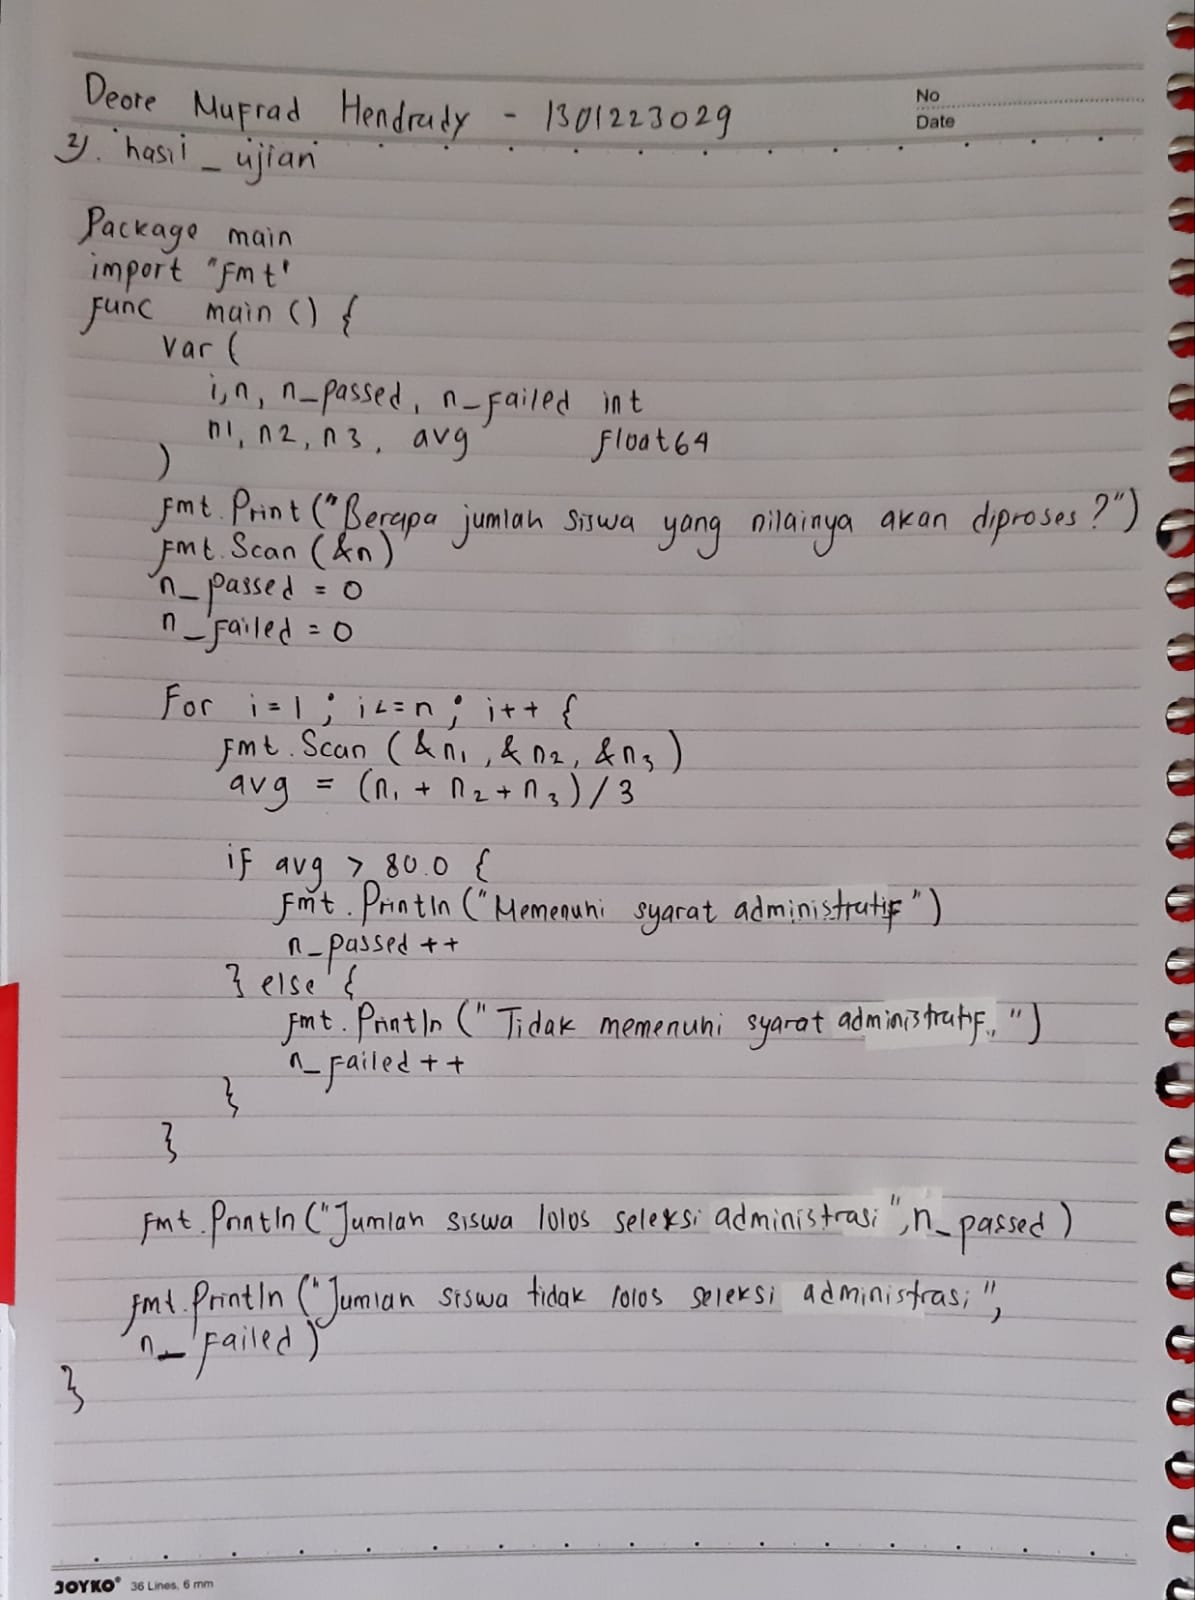 Deore Mufrad Hendrady - 1301223029
No
Date
2). hasil_ujian
Package main
import "fmt"
func main () {
var (
i, n, n_passed, n_failed int
n1, n2, n3, avg float64
)
fmt.Print ("Berapa jumlah siswa yang nilainya akan diproses?")
fmt.Scan (&n)
n_passed = 0
n_failed = 0
For i = 1 ; i <= n ; i++ {
fmt.Scan (&n1, &n2, &n3)
avg = (n1 + n2 + n3) / 3
if avg > 80.0 {
fmt.Println ("Memenuhi syarat administratif")
n_passed ++
} else {
fmt.Println ("Tidak memenuhi syarat administratif..")
n_failed ++
}
}
fmt.Println ("Jumlah siswa lolos seleksi administrasi", n_passed)
fmt.Println ("Jumlah siswa tidak lolos seleksi administrasi",
n_failed)
}
JOYKO® 36 Lines, 6 mm